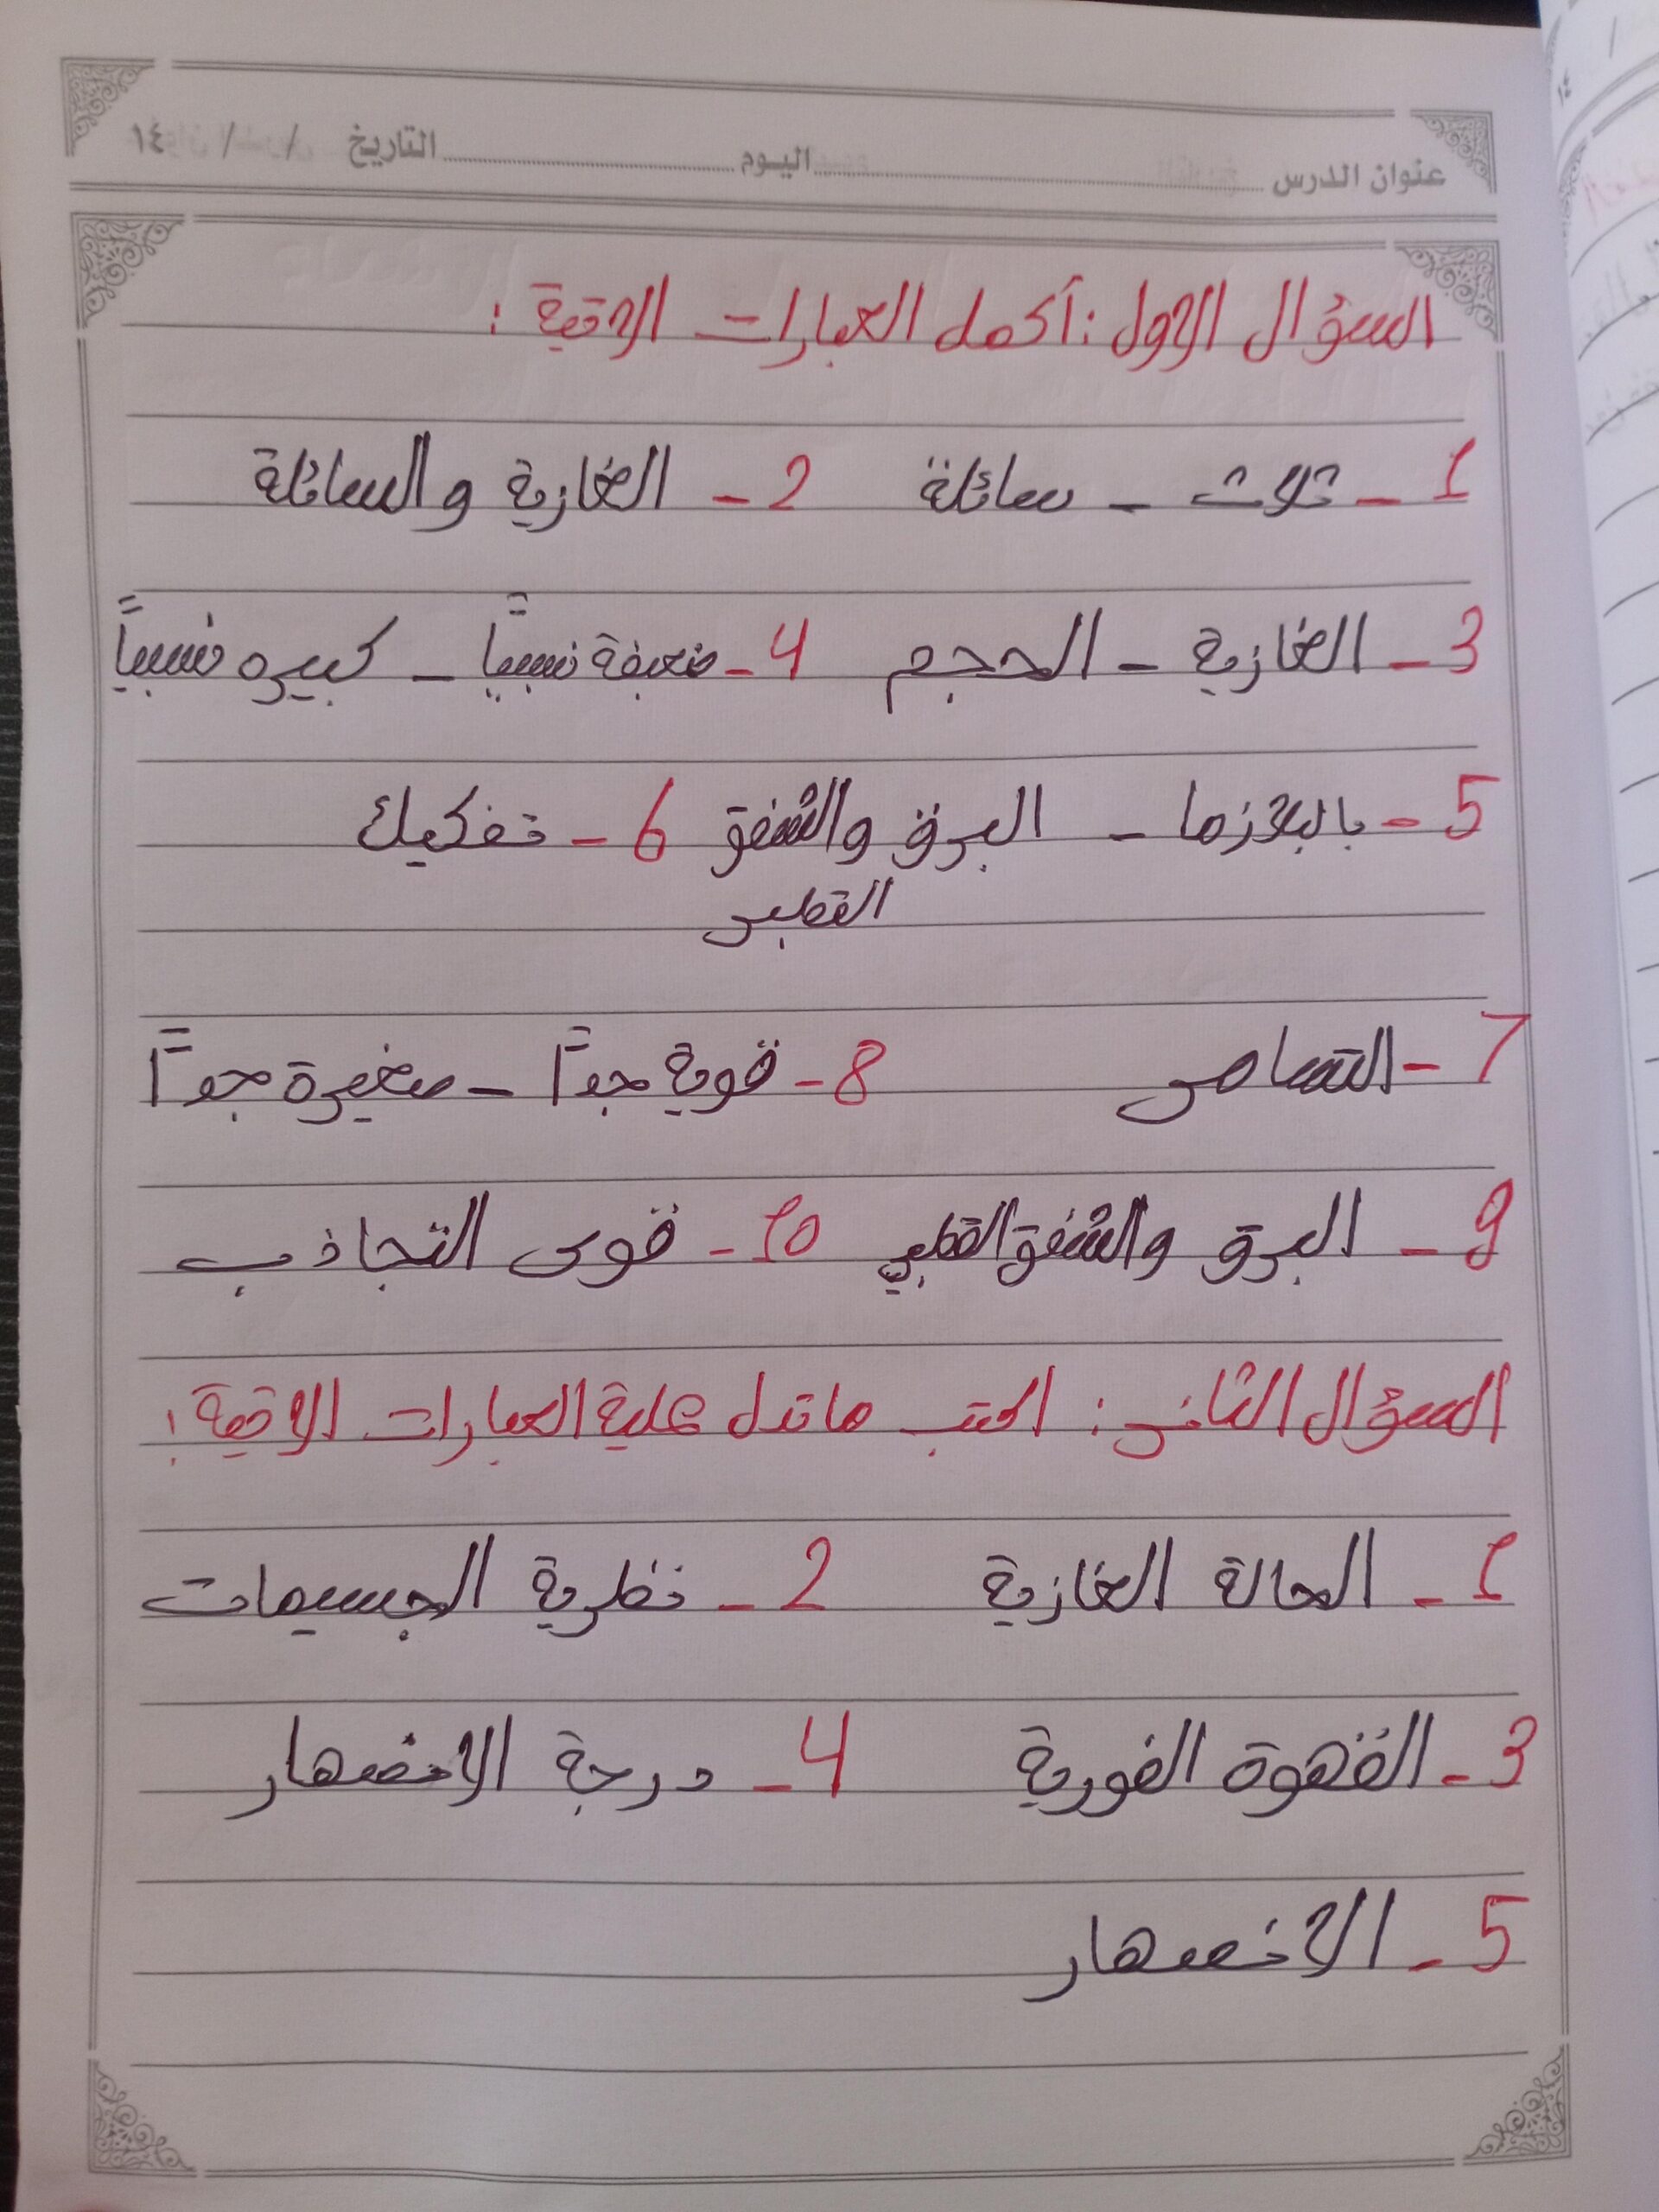 عنوان الدرس اليوم التاريخ / / ١٤
السؤال الاول : أكمل العبارات الاتية :
1 - ثلاث - سائلة 2 - الغازية والسائلة
3 - الغازية - الحجم 4 - ضعيفة نسبيًا - كبيره نسبيًا
5 - بالبلازما - البرق والشفق 6 - تفكيك
القطبي
7 - التسامي 8 - قوية جدًا - صغيرة جدًا
9 - البرق والشفق القطبي 10 - قوى التجاذب
السؤال الثاني : اكتب ما تدل علية العبارات الاتية :
1 - الحالة الغازية 2 - نظرية الجسيمات
3 - القهوة الفورية 4 - درجة الانصهار
5 - الانصهار